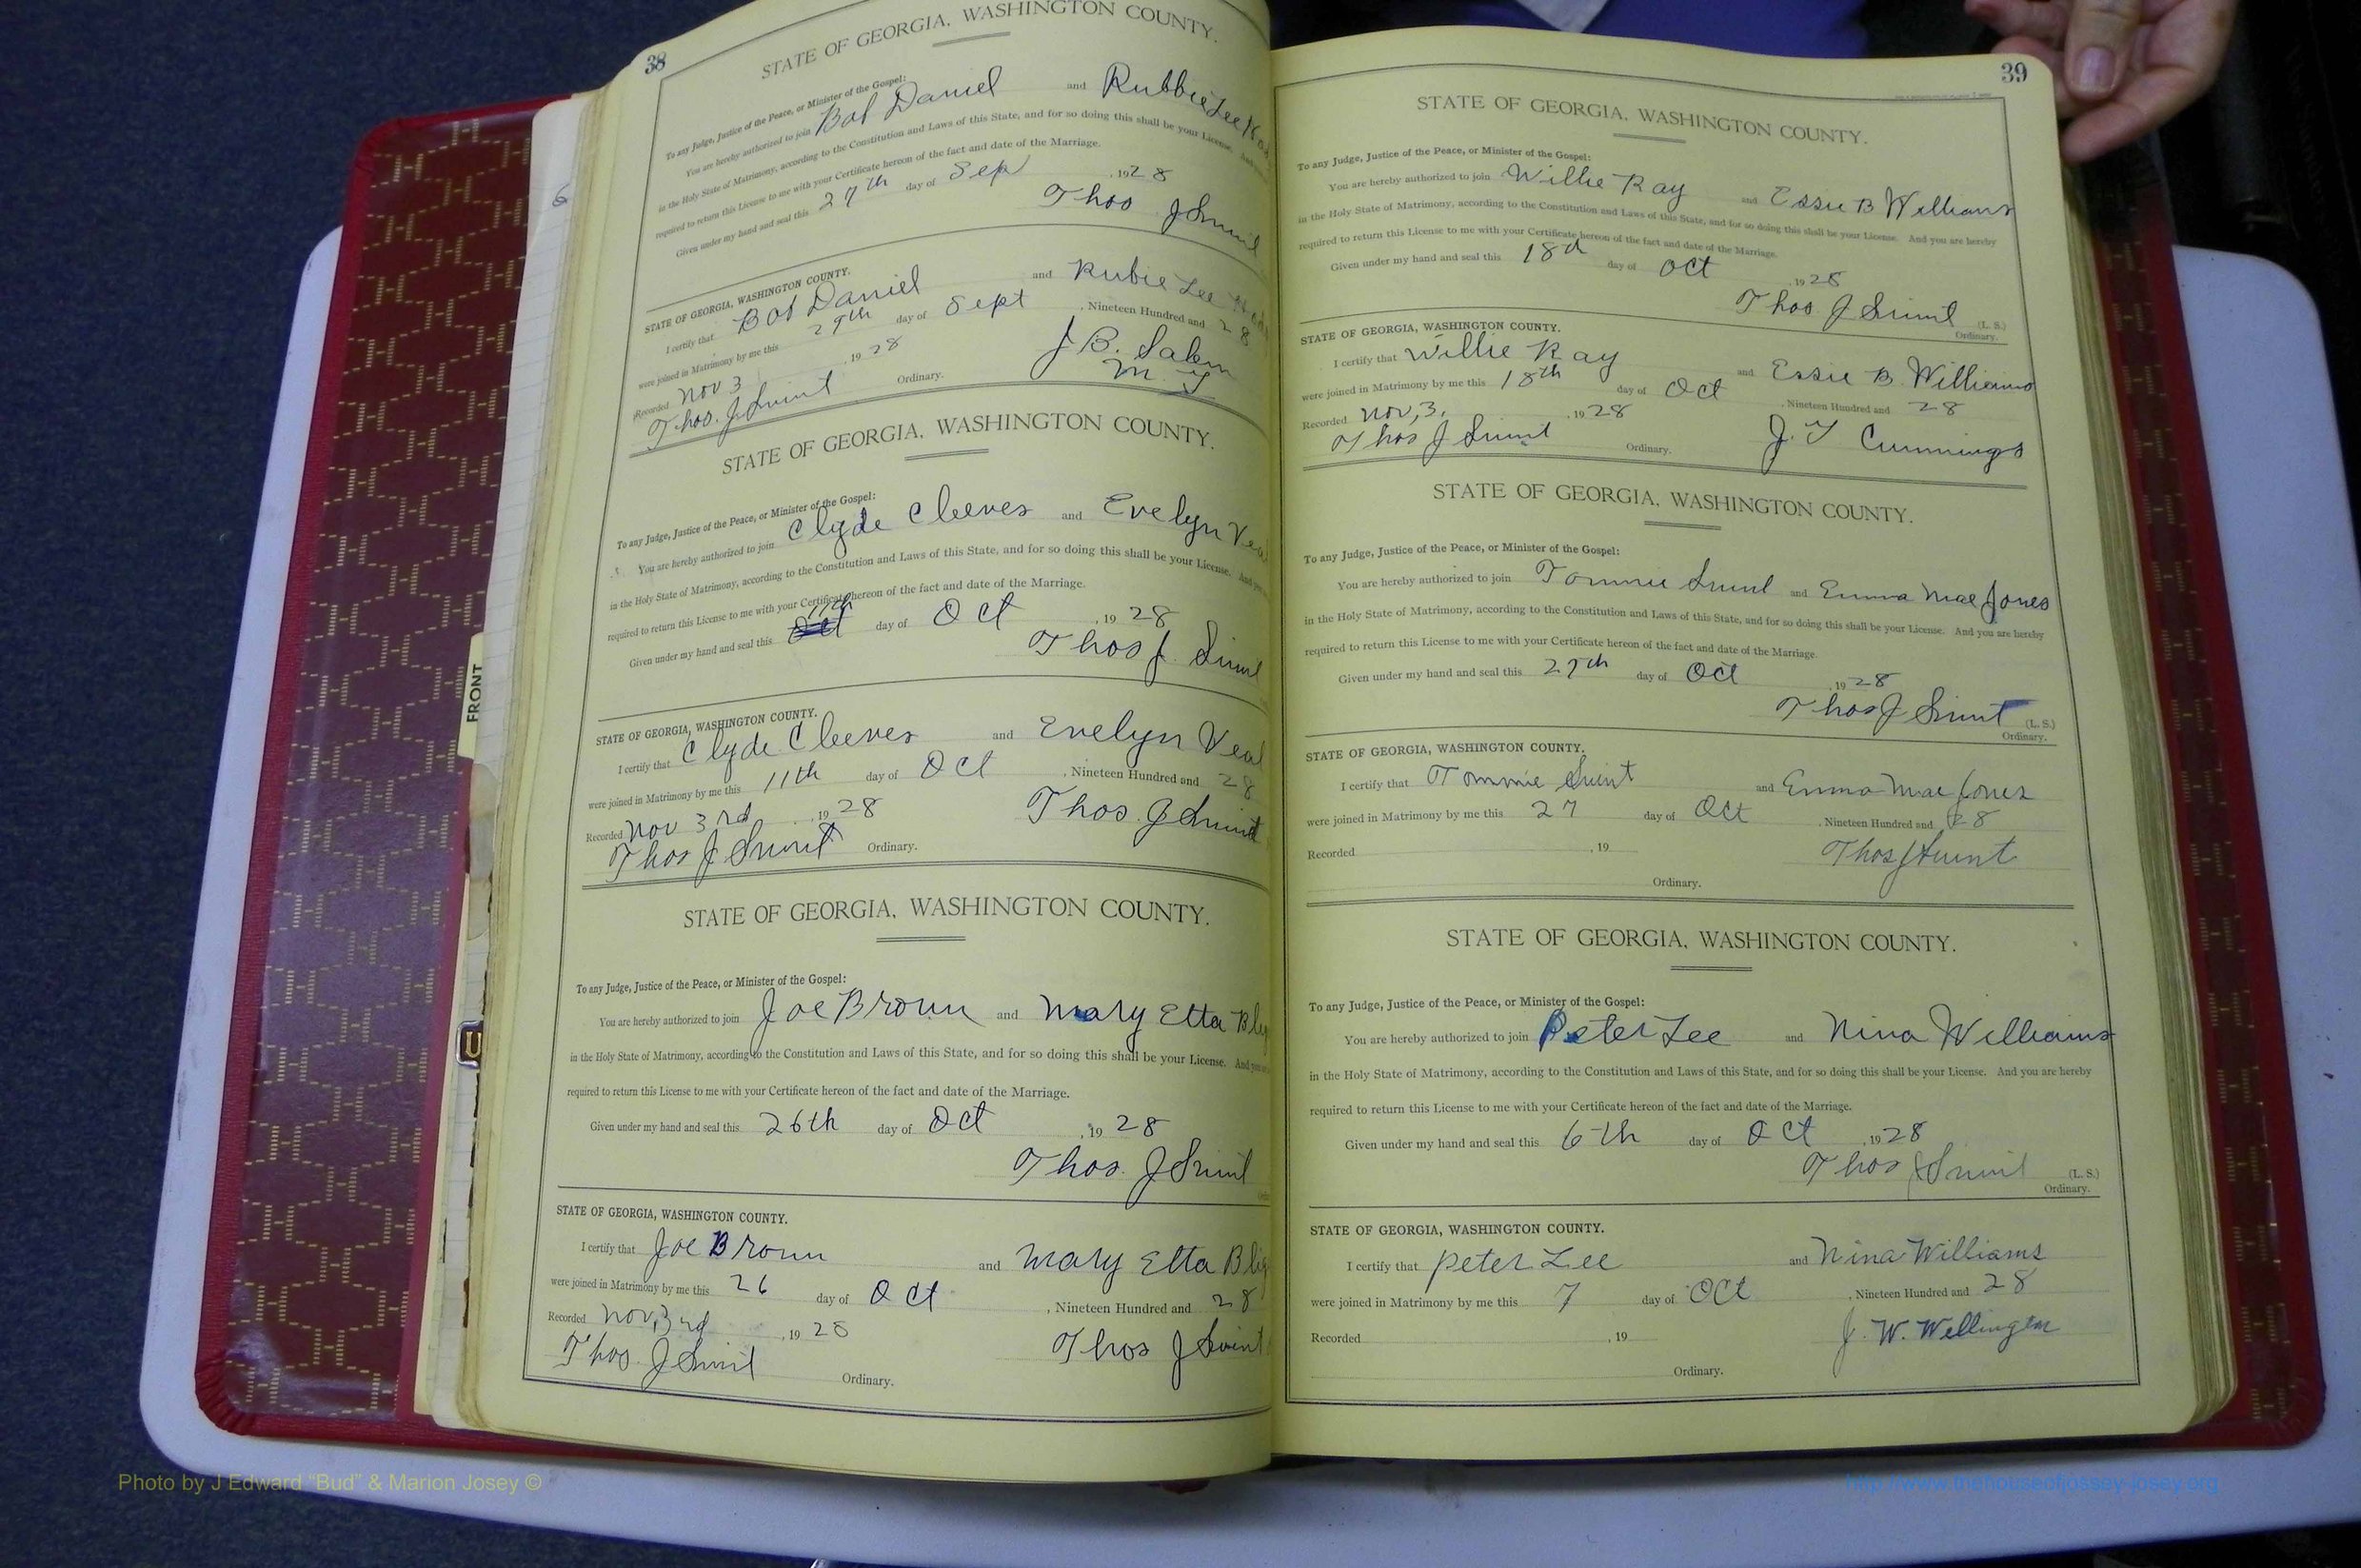 38
STATE OF GEORGIA, WASHINGTON COUNTY.
To any Judge, Justice of the Peace, or Minister of the Gospel:
You are hereby authorized to join Bob Daniel and Rubbie Lee
in the Holy State of Matrimony, according to the Constitution and Laws of this State, and for so doing this shall be your License. And
required to return this License to me with your Certificate hereon of the fact and date of the Marriage.
Given under my hand and seal this 27th day of Sep , 1928
Thos J Swint
STATE OF GEORGIA, WASHINGTON COUNTY.
I certify that Bob Daniel and Rubie Lee
were joined in Matrimony by me this 29th day of Sept , Nineteen Hundred and 28
Recorded Nov 3 , 19 28 J B.
Thos. J Swint Ordinary.
STATE OF GEORGIA, WASHINGTON COUNTY.
To any Judge, Justice of the Peace, or Minister of the Gospel:
You are hereby authorized to join Clyde Cleeves and Evelyn Veal
in the Holy State of Matrimony, according to the Constitution and Laws of this State, and for so doing this shall be your License. And you
required to return this License to me with your Certificate hereon of the fact and date of the Marriage.
Given under my hand and seal this 11th day of Oct , 19 28
Thos J. Swint
STATE OF GEORGIA, WASHINGTON COUNTY.
I certify that Clyde Cleeves and Evelyn Veal
were joined in Matrimony by me this 11th day of Oct , Nineteen Hundred and 28
Recorded Nov 3rd , 19 28 Thos. J Swint
Thos J Swint Ordinary.
STATE OF GEORGIA, WASHINGTON COUNTY.
To any Judge, Justice of the Peace, or Minister of the Gospel:
You are hereby authorized to join Joe Brown and Mary Etta
in the Holy State of Matrimony, according to the Constitution and Laws of this State, and for so doing this shall be your License. And you
required to return this License to me with your Certificate hereon of the fact and date of the Marriage.
Given under my hand and seal this 26th day of Oct , 19 28
Thos. J Swint
STATE OF GEORGIA, WASHINGTON COUNTY.
I certify that Joe Brown and Mary Etta
were joined in Matrimony by me this 26 day of Oct , Nineteen Hundred and 28
Recorded Nov, 3rd , 19 28 Thos J Swint
Thos. J Swint Ordinary.
39
STATE OF GEORGIA, WASHINGTON COUNTY.
To any Judge, Justice of the Peace, or Minister of the Gospel:
You are hereby authorized to join Willie Ray and Essie B Williams
in the Holy State of Matrimony, according to the Constitution and Laws of this State, and for so doing this shall be your License. And you are hereby
required to return this License to me with your Certificate hereon of the fact and date of the Marriage.
Given under my hand and seal this 18th day of Oct , 19 28
Thos J Swint (L. S.)
Ordinary.
STATE OF GEORGIA, WASHINGTON COUNTY.
I certify that Willie Ray and Essie B. Williams
were joined in Matrimony by me this 18th day of Oct , Nineteen Hundred and 28
Recorded Nov, 3, , 19 28 J. T Cummings
Thos J Swint Ordinary.
STATE OF GEORGIA, WASHINGTON COUNTY.
To any Judge, Justice of the Peace, or Minister of the Gospel:
You are hereby authorized to join Tommie Swint and Emma Mae Jones
in the Holy State of Matrimony, according to the Constitution and Laws of this State, and for so doing this shall be your License. And you are hereby
required to return this License to me with your Certificate hereon of the fact and date of the Marriage.
Given under my hand and seal this 27th day of Oct , 19 28
Thos J Swint (L. S.)
Ordinary.
STATE OF GEORGIA, WASHINGTON COUNTY.
I certify that Tommie Swint and Emma Mae Jones
were joined in Matrimony by me this 27 day of Oct , Nineteen Hundred and 28
Recorded , 19 Thos J Swint
Ordinary.
STATE OF GEORGIA, WASHINGTON COUNTY.
To any Judge, Justice of the Peace, or Minister of the Gospel:
You are hereby authorized to join Peter Lee and Nina Williams
in the Holy State of Matrimony, according to the Constitution and Laws of this State, and for so doing this shall be your License. And you are hereby
required to return this License to me with your Certificate hereon of the fact and date of the Marriage.
Given under my hand and seal this 6th day of Oct , 19 28
Thos J Swint (L. S.)
Ordinary.
STATE OF GEORGIA, WASHINGTON COUNTY.
I certify that Peter Lee and Nina Williams
were joined in Matrimony by me this 7 day of Oct , Nineteen Hundred and 28
Recorded , 19 J. W.
Ordinary.
FRONT
Photo by J Edward “Bud” & Marion Josey ©
http://www.thehouseofjossey-josey.org